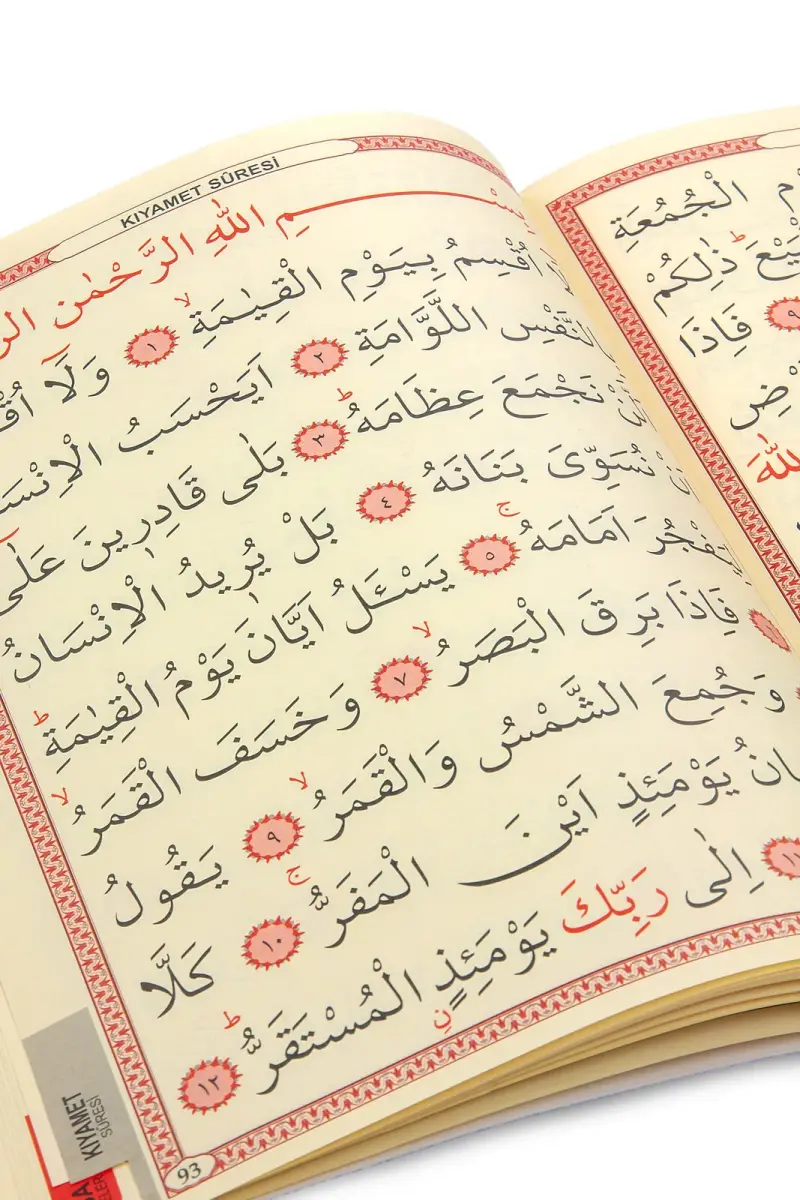 KIYAMET SÛRESİ
اللّٰهِ الرَّحْمٰنِ
اُقْسِمُ بِيَوْمِ الْقِيٰمَةِۙ ﴿١﴾ وَلَٓا
النَّفْسِ اللَّوَّامَةِ ﴿٢﴾ اَيَحْسَبُ
نَجْمَعَ عِظَامَهُۜ ﴿٣﴾ بَلٰى قَادِرٖينَ عَلٰٓى
نُسَوِّىَ بَنَانَهُ ﴿٤﴾ بَلْ يُرٖيدُ الْاِنْسَانُ
اَمَامَهُۚ ﴿٥﴾ يَسْـَٔلُ اَيَّانَ يَوْمُ الْقِيٰمَةِۜ
فَاِذَا بَرِقَ الْبَصَرُۙ ﴿٧﴾ وَخَسَفَ الْقَمَرُۙ
وَجُمِعَ الشَّمْسُ وَالْقَمَرُۙ ﴿٩﴾ يَقُولُ
يَوْمَئِذٍ اَيْنَ الْمَفَرُّۚ ﴿١٠﴾ كَلَّا
اِلٰى رَبِّكَ يَوْمَئِذٍۨ الْمُسْتَقَرُّۜ ﴿١٢﴾
93
KIYAMET
SÛRESİ
الْجُمُعَةِ
ذٰلِكُمْ
﴿٩﴾ فَاِذَا